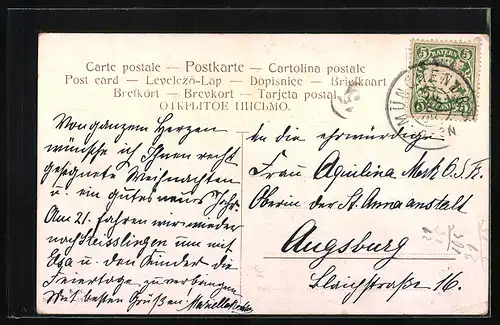 Carte postale — Postkarte — Cartolina postale
Post card — Levelező-Lap — Dopisnice — Briefkaart
Brefkort — Brevkort — Tarjeta postal
ОТКРЫТОЕ ПИСЬМО.
5 BAYERN 5
MÜNCHEN
Von ganzem Herzen
wünsche ich Ihnen recht
gesegnete Weihnachten
u. ein gutes neues Jahr.
Am 21. fahren wir wieder
nach Steisslingen um mit
u. den Kinder die
Feiertage zu verbringen.
Mit besten Grüßen
An die ehrwürdige
Frau Aquilina Merk O.S.F.
Oberin der St. Annaanstalt
Augsburg
Bleichstraße 16.